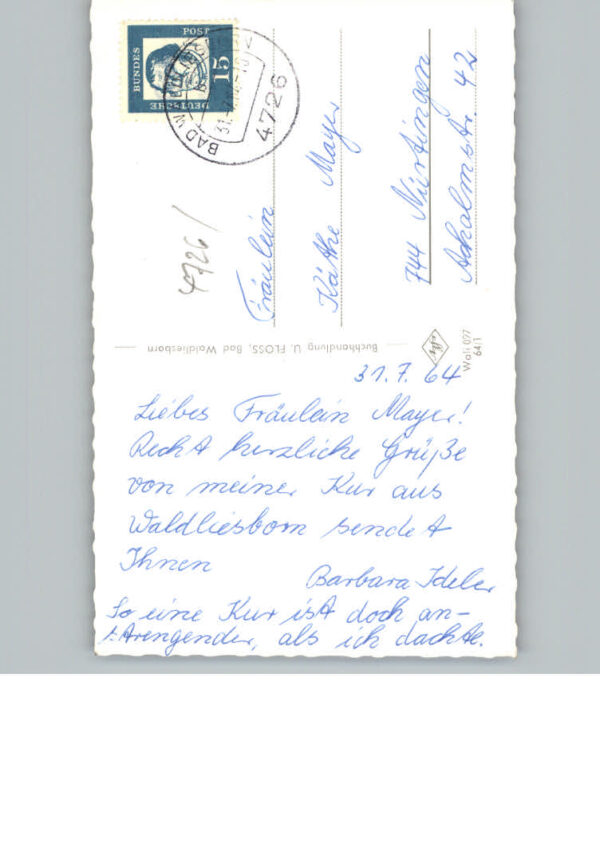 DEUTSCHE
BUNDES
POST
15
BAD W
4726
4726/
Fräulein
Käthe Mayer
744 Nürtingen
Achalmstr. 42
Buchhandlung U. FLOSS, Bad Waldliesborn
Wali 027
64/1
31.7.64
Liebes Fräulein Mayer!
Recht herzliche Grüße
von meiner Kur aus
Waldliesborn sendet
Ihnen
Barbara Ideler
So eine Kur ist doch an-
strengender, als ich dachte.